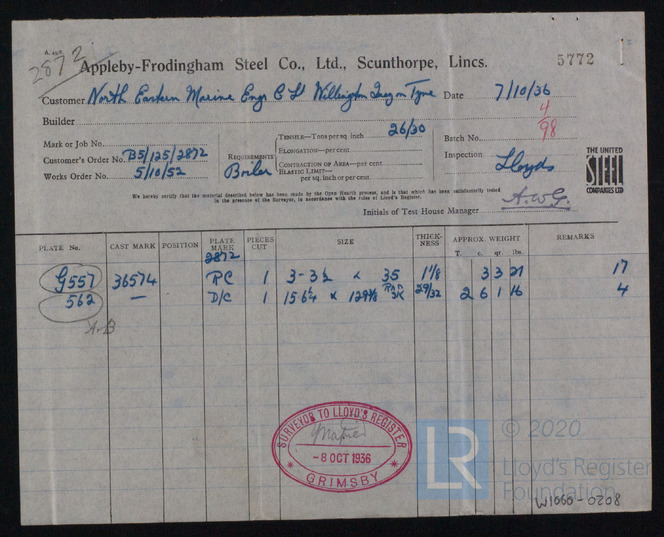 2872
Appleby-Frodingham Steel Co., Ltd., Scunthorpe, Lincs.
5772
Customer North Eastern Marine Engg C Ld Willington Quay on Tyne Date 7/10/36
Builder
4/98
Mark or Job No.
Customer's Order No. B5/125/2872
Works Order No. 5/10/52
Requirements Boiler
Tensile—Tons per sq. inch 26/30
Elongation—per cent
Contraction of Area—per cent
Elastic Limit—
per sq. inch or per cent.
Batch No.
Inspection Lloyds
THE UNITED
STEEL
COMPANIES LTD
We hereby certify that the material described below has been made by the Open Hearth process, and is that which has been satisfactorily tested
in the presence of the Surveyor, in accordance with the rules of Lloyd's Register.
Initials of Test House Manager A.W.G.
PLATE No. CAST MARK POSITION PLATE MARK PIECES CUT SIZE THICK-NESS APPROX. WEIGHT REMARKS
T. c. qr. lbs.
2872
G557 36574 PC 1 3-3½ x 35 1⅛ 3 3 21 17
562 — D/C 1 29/32 2 6 1 16 4
A-B
SURVEYOR TO LLOYD'S REGISTER
-8 OCT 1936
GRIMSBY
LR © 2020
Lloyd's Register
Foundation
W1060-0208